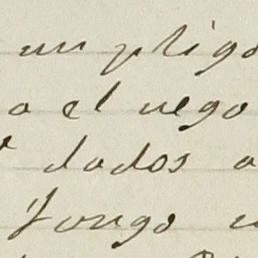 un pligo
o el nego
dados a
Tongo